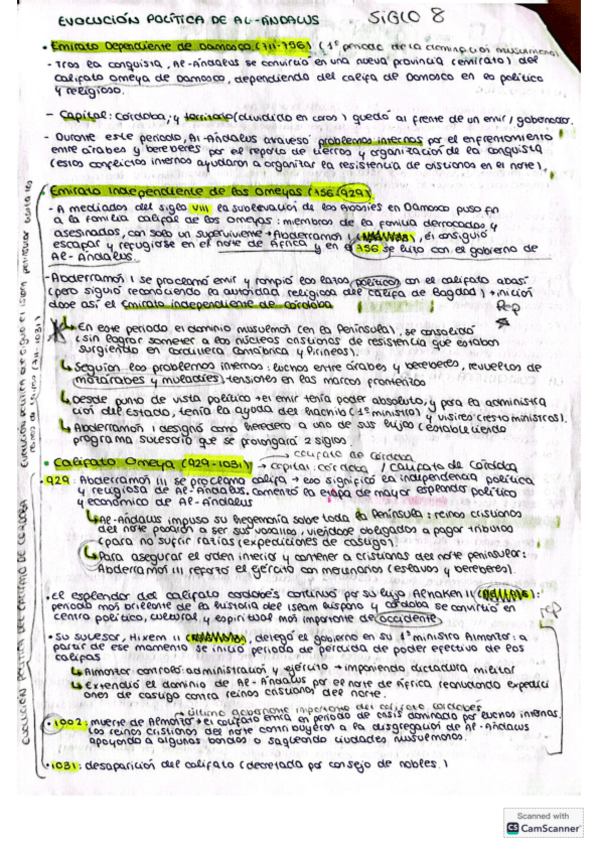 EVOLUCIÓN POLÍTICA DE AL-ÁNDALUS SIGLO 8
• Emirato Dependiente de Damasco (711-756) (1º periodo de la dominación musulmana)
- Tras la conquista, Al-Ándalus se convirtió en una nueva provincia (emirato) del
califato omeya de Damasco, dependiendo del califa de Damasco en lo político
y religioso.
- Capital: Córdoba, y territorio (dividido en coras) quedó al frente de un emir / gobernador.
- Durante este periodo, Al-Ándalus atravesó problemas internos por el enfrentamiento
entre árabes y bereberes por el reparto de tierras y organización de la conquista
(estos conflictos internos ayudaron a organizar la resistencia de cristianos en el norte).
Emirato Independiente de los Omeyas (756/929)
- A mediados del siglo VIII la sublevación de los Abasíes en Damasco puso fin
a la familia califal de los omeyas: miembros de la familia derrocados y
asesinados, con solo un superviviente → Abderramán I, él consiguió
escapar y refugiarse en el norte de África y en 756 se hizo con el gobierno de
Al-Ándalus
- Abderramán I se proclamó emir y rompió los lazos políticos con el califato abasí
(pero siguió reconociendo la autoridad religiosa del califa de Bagdad) → inición
dose así el Emirato independiente de Córdoba
↳ En este periodo el dominio musulmán (en la Península), se consolidó
(sin lograr someter a los núcleos cristianos de resistencia que estaban
surgiendo en cordillera cantábrica y Pirineos).
↳ Seguían los problemas internos: luchas entre árabes y bereberes, revueltas de
mozárabes y muladíes, tensiones en las marcas fronterizas
↳ Desde punto de vista político → el emir tenía poder absoluto, y para la administra
ción del Estado, tenía la ayuda del hachib (1º ministro) y visires (resto ministros).
↳ Abderramán I designó como heredero a uno de sus hijos (estableciendo
programa sucesorio que se prolongará 2 siglos.
• Califato Omeya (929-1031) → califato de Córdoba
→ capital: Córdoba / Califato de Córdoba
• 929: Abderramán III se proclamó califa → eso significó la independencia política
y religiosa de Al-Ándalus. Comentó la etapa de mayor esplendor político
y económico de Al-Ándalus.
↳ Al-Ándalus impuso su hegemonía sobre toda la Península: reinos cristianos
del norte pasaron a ser sus vasallos, viéndose obligados a pagar tributos
(para no sufrir razias (expediciones de castigo).
↳ Para asegurar el orden interior y contener a cristianos del norte peninsular:
Abderramán III reforzó el ejército con mercenarios (eslavos y bereberes).
• El esplendor del califato cordobés continuó por su hijo Alhakén II:
periodo más brillante de la historia del islam hispano y Córdoba se convirtió en
centro político, cultural y espiritual más importante de occidente.
• Su sucesor, Hixem II, delegó el gobierno en su 1º ministro Almanzor: a
partir de ese momento se inició periodo de pérdida de poder efectivo de los
califas
↳ Almanzor controló administración y ejército → imponiendo dictadura militar
↳ Extendió el dominio de Al-Ándalus por el norte de África reanudando expedici
ones de castigo contra reinos cristianos del norte.
• 1002: muerte de Almanzor → el califato entra en periodo de crisis dominado por luchas internas.
Los reinos cristianos del norte contribuyeron a la disgregación de Al-Ándalus
apoyando a algunos bandos o saqueando ciudades musulmanas.
• 1031: desaparición del califato (decretada por consejo de nobles.)
Scanned with
CS CamScanner